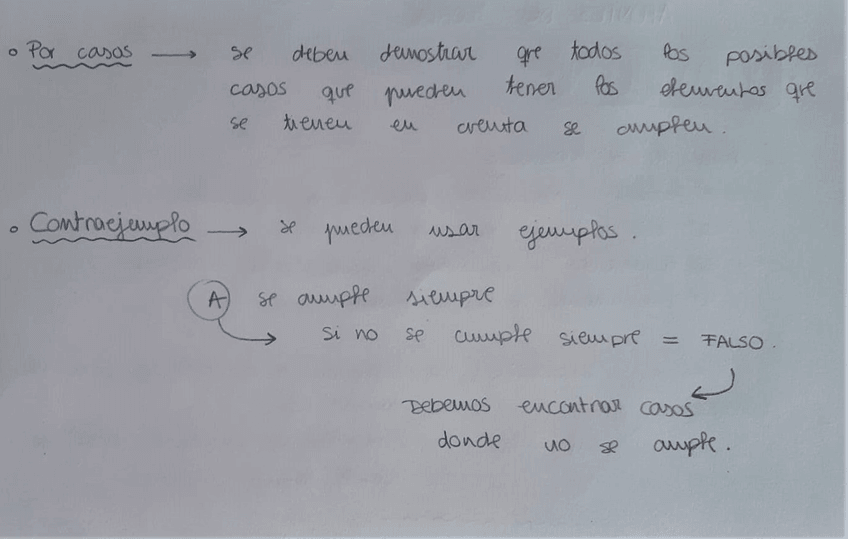 o Por casos → se deben demostrar que todos los posibles
casos que pueden tener los elementos que
se tienen en cuenta se cumplen.
o Contraejemplo → se pueden usar ejemplos.
A se cumple siempre
si no se cumple siempre = FALSO.
Debemos encontrar casos
donde no se cumple.